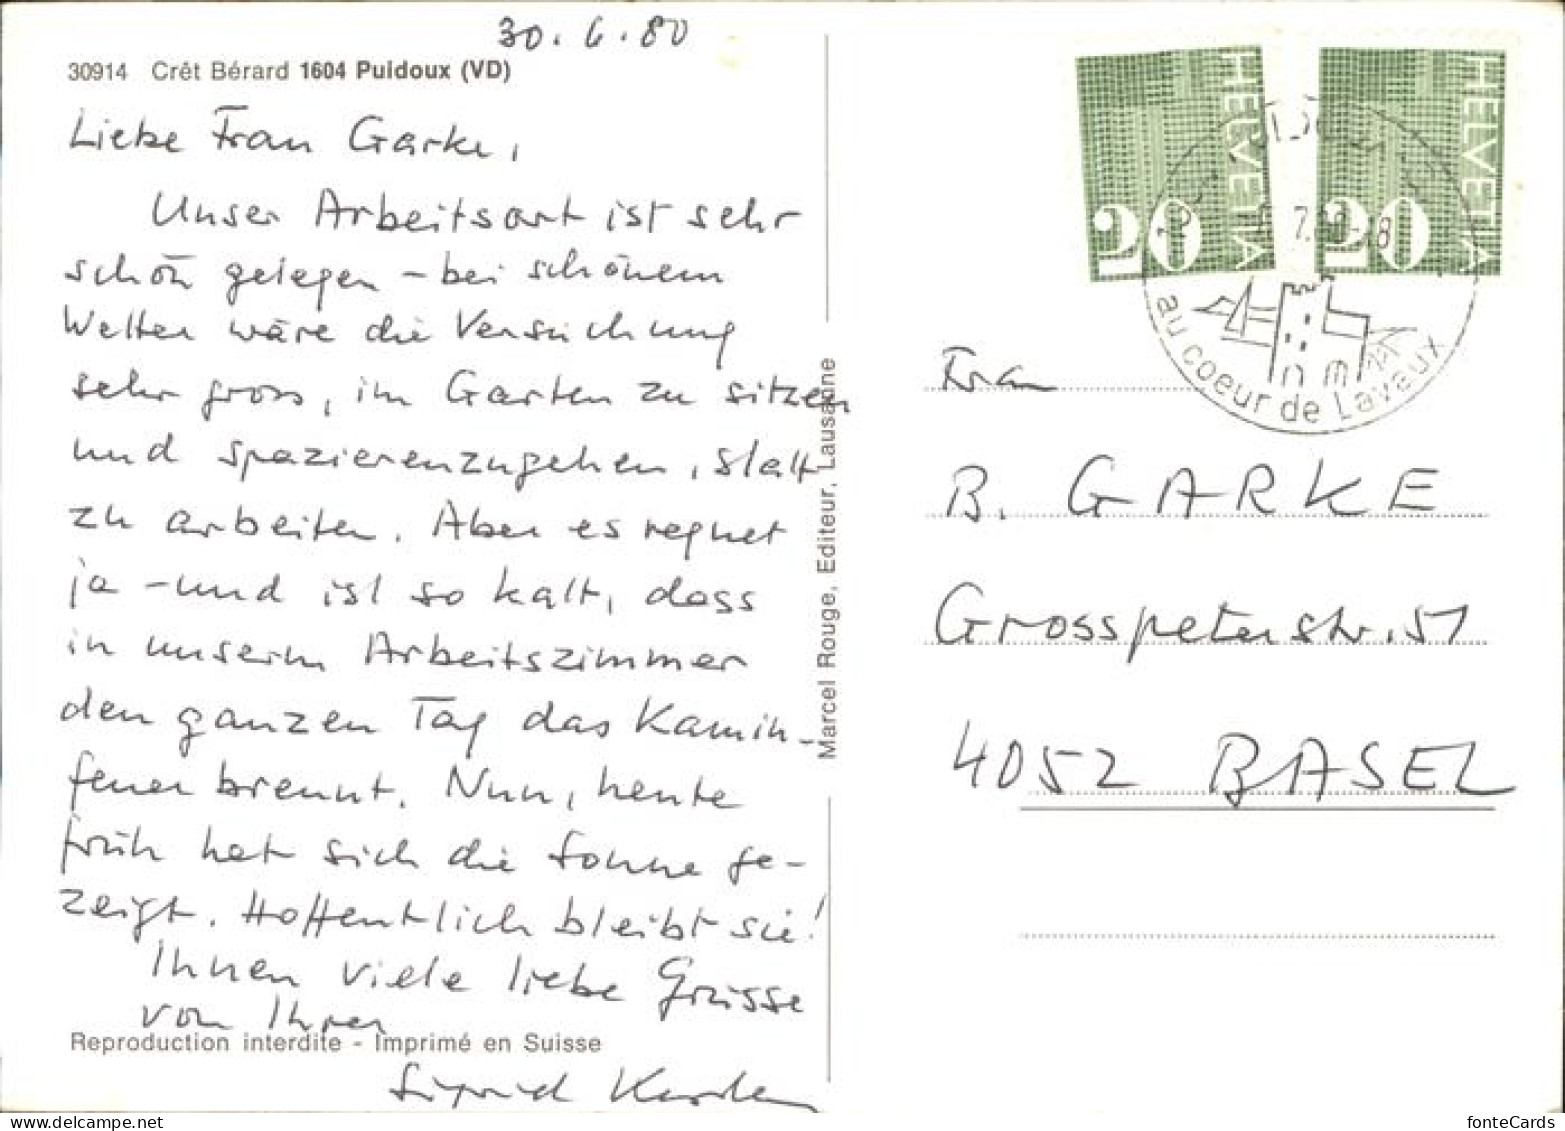 30.6.80
30914 Crêt Bérard 1604 Puidoux (VD)
Liebe Frau Garke,
Unser Arbeitsort ist sehr
schön gelegen – bei schönem
Wetter wäre die Versuchung
sehr gross, im Garten zu sitzen
und spazierenzugehen, statt
zu arbeiten. Aber es regnet
ja – und ist so kalt, dass
in unserm Arbeitszimmer
den ganzen Tag das Kamin-
feuer brennt. Nun, heute
früh hat sich die Sonne ge-
zeigt. Hoffentlich bleibt sie!
Ihnen viele liebe Grüsse
von Ihrer
Reproduction interdite - Imprimé en Suisse
Sigrid
Marcel Rouge, Editeur, Lausanne
HELVETIA
50
HELVETIA
50
au coeur de Lavaux
Frau
B. GARKE
Grosspeterstr. 51
4052 BASEL
fonteCards